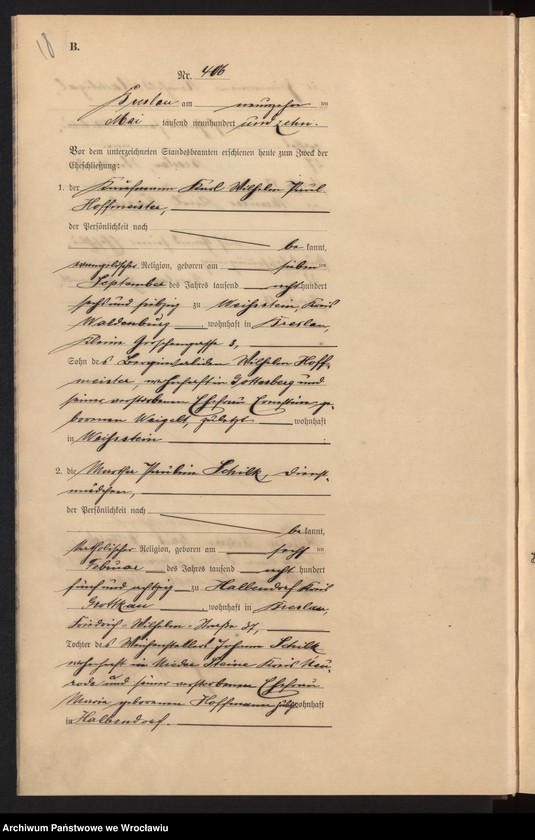 18
B.
Nr. 406
Breslau am neunzehn ten
Mai tausend neunhundert und zehn.
Vor dem unterzeichneten Standesbeamten erschienen heute zum Zweck der
Eheschließung:
1. der Kaufmann Karl Wilhelm Paul
Hoffmeister,
der Persönlichkeit nach
be kannt,
evangelischer Religion, geboren am sieben
September des Jahres tausend acht hundert
sechs und siebzig zu Weißstein, Kreis
Waldenburg, wohnhaft in Breslau,
Kleine Groschengasse 8,
Sohn des Berginvaliden Wilhelm Hoff-
meister, wohnhaft in Gottesberg und
seiner verstorbenen Ehefrau Ernestine ge-
borenen Weigelt, zuletzt wohnhaft
in Weißstein.
2. die Martha Pauline Schilk, Dienst-
mädchen,
der Persönlichkeit nach
be kannt,
katholischer Religion, geboren am sechs ten
Februar des Jahres tausend acht hundert
fünf und achtzig zu Halbendorf Kreis
Grottkau, wohnhaft in Breslau,
Friedrich-Wilhelm-Straße 37,
Tochter des Weichenstellers Johann Schilk
wohnhaft in Nieder Steine Kreis Neu-
rode und seiner verstorbenen Ehefrau
Maria geborenen Hoffmann zuletzt wohnhaft
in Halbendorf.
Archiwum Państwowe we Wrocławiu